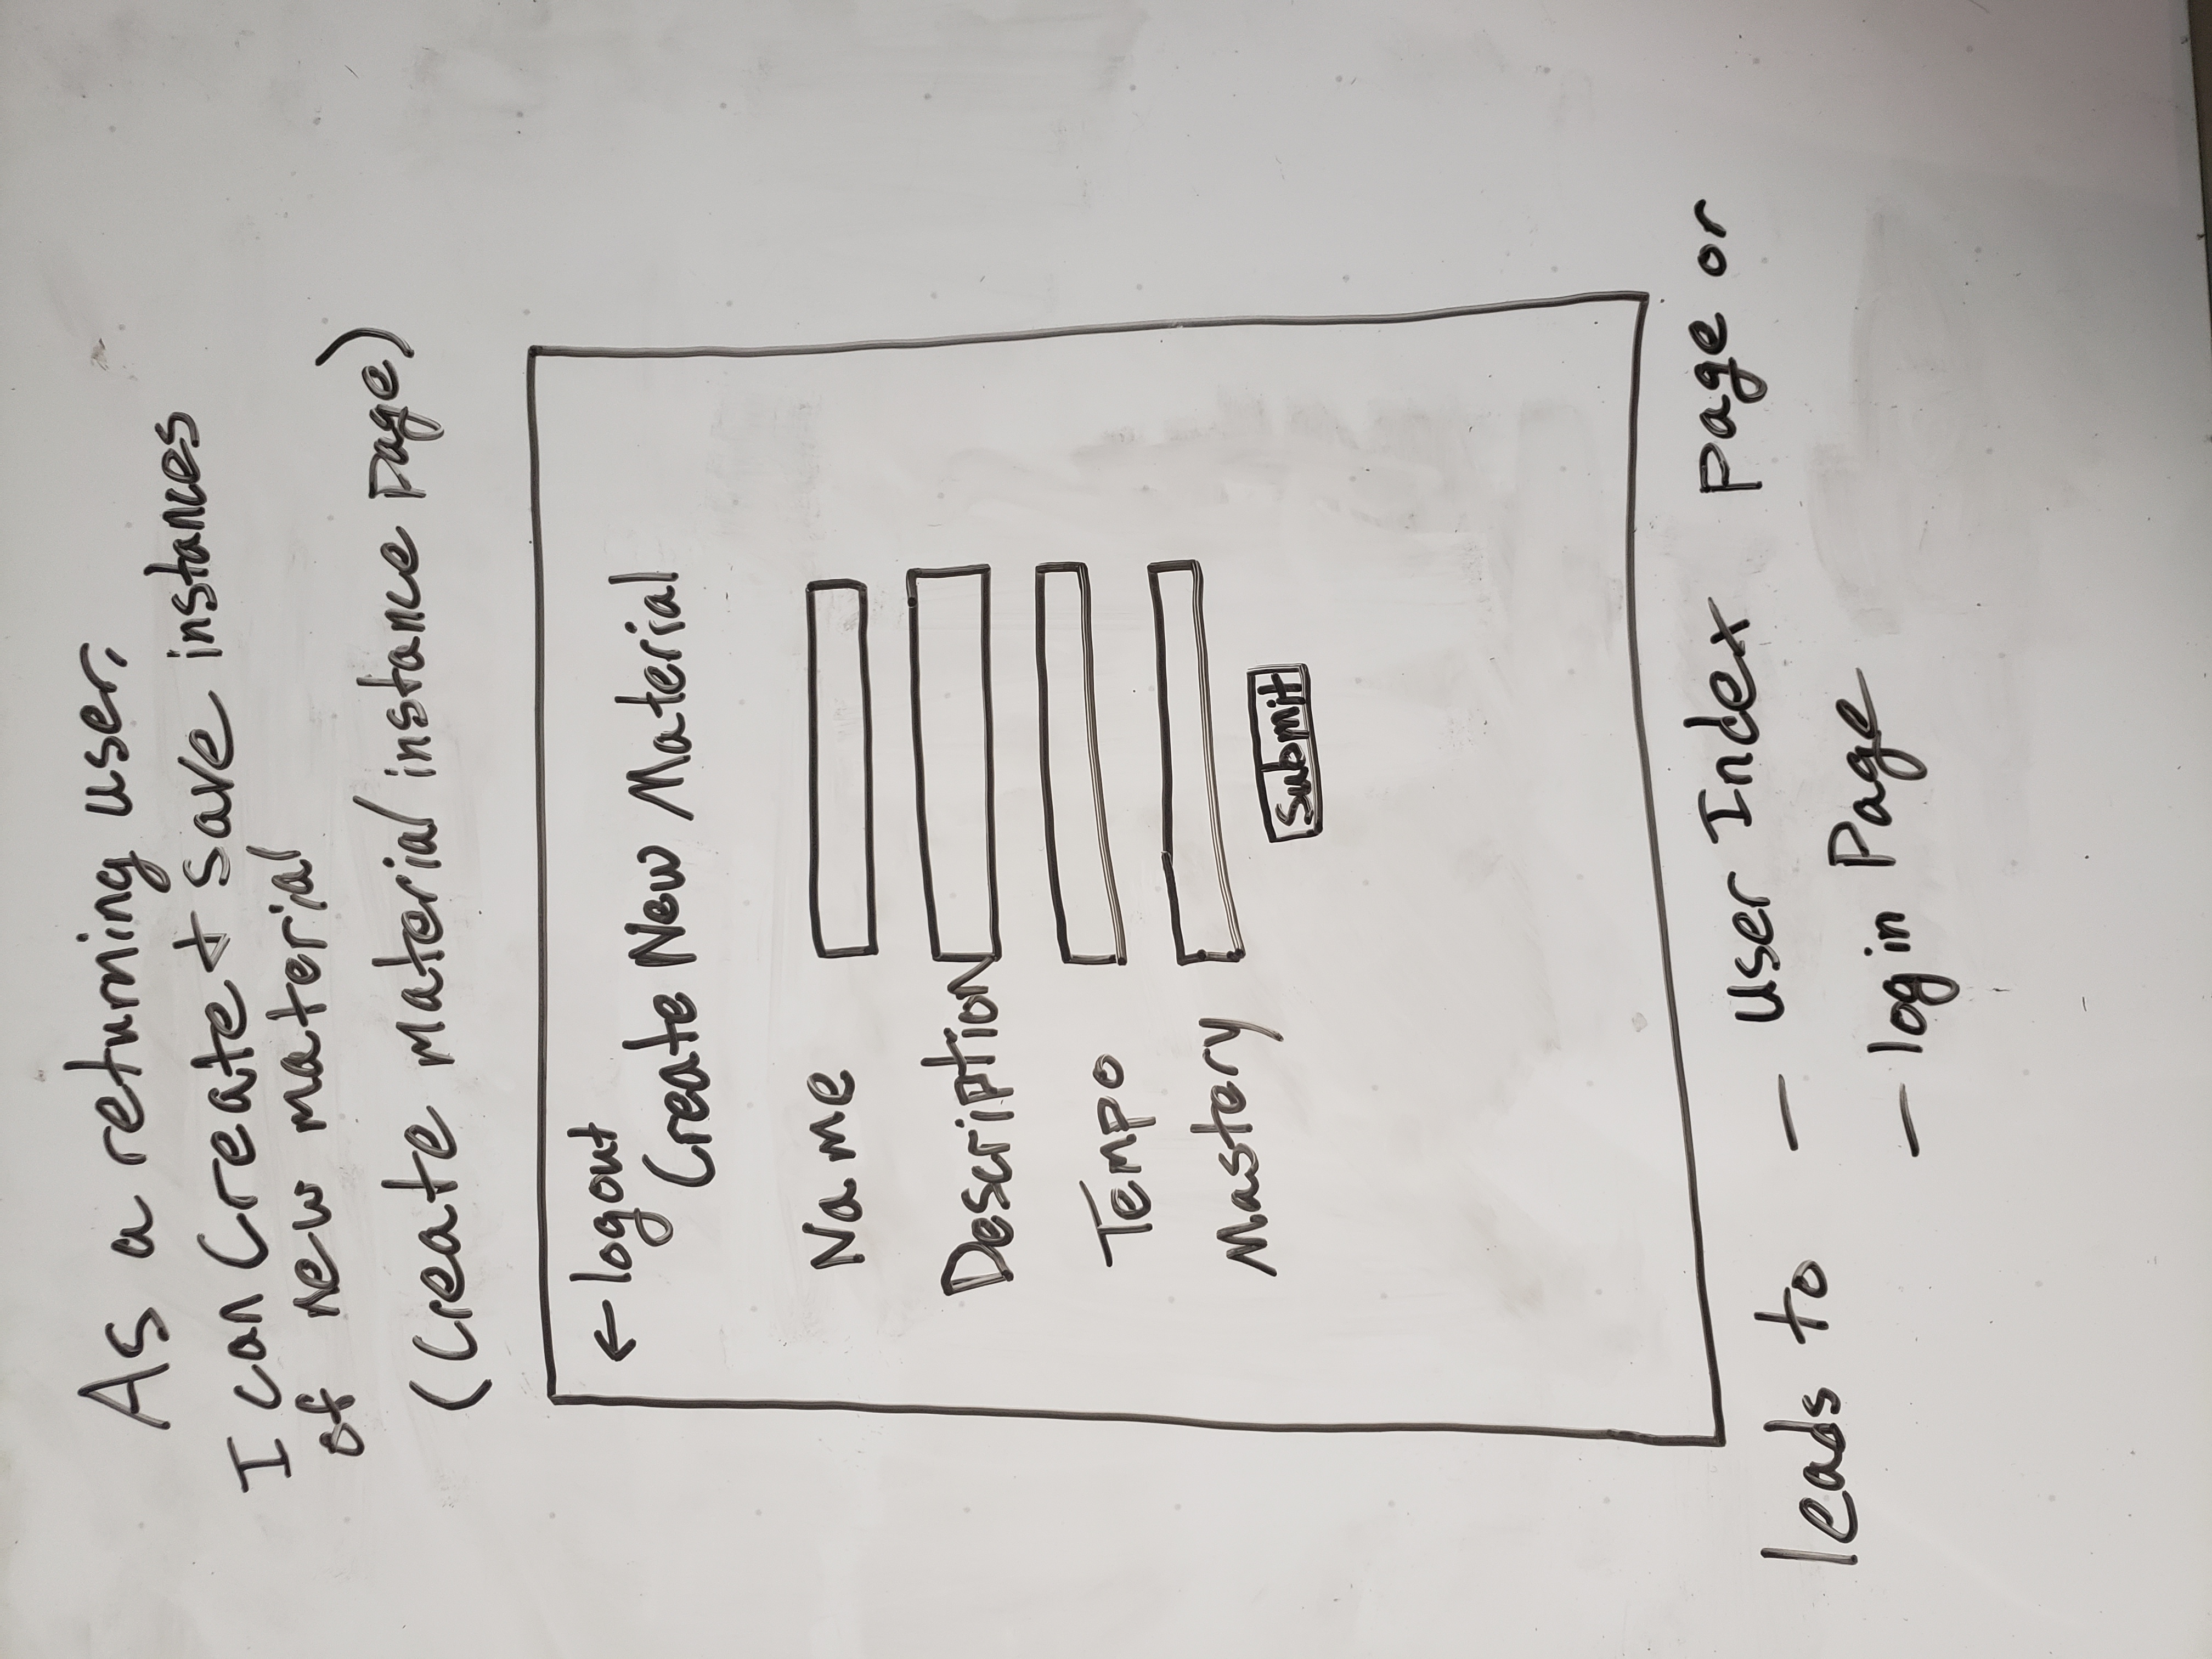 As a returning user,
I can Create + Save instances
of new material
(Create material instance page)
← logout
Create New Material
Name
Description
Tempo
Mastery
Submit
leads to — user Index page or
— login Page